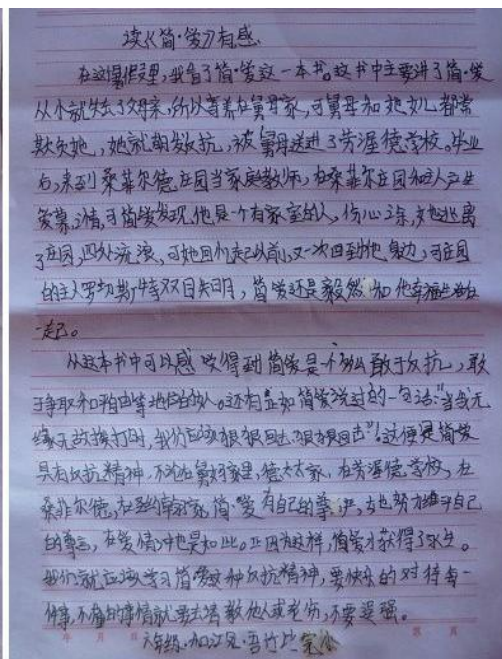 读《简·爱》有感
在这暑假里,我看了简·爱这一本书。这书中主要讲了简·爱
从小就失去了父亲,所以寄养在舅母家,可舅母和她女儿都常
欺负她,她就朝敌抗,被舅母送进了劳渥德学校。毕业
后,来到桑菲尔德庄园当家庭教师,在桑菲尔庄园和主人产生
爱慕之情,可简爱发现他是一个有家室的人,伤心之余,她逃离
了庄园,四处流浪,可她回忆起以前,又一次回到他身边,可庄园
的主人罗切斯特双目失明,简爱还是毅然和他幸福生活在
一起。
从这本书中可以感受得到简爱是个那么敢于反抗,敢
于争取和平自由等地位的人。还有正如简爱说过的一句话:"当我无
缘无故挨打时,我们应该狠狠回击,狠狠回击"!这便是简爱
具有反抗精神,不论在舅妈家里,德太太家,在劳渥德学校,在
桑菲尔德,在圣约翰家,简·爱有自己的尊严,也努力维护自己
的尊言,在爱情中也是如此。正因为这样,简爱才获得了永生。
我们就应该学习简爱这种反抗精神,要快乐的对待每一
件事,不懂的事情就要去请教他人或老师,不要逞强。
年 月 日 第 页
六年级·加江见·吾竹